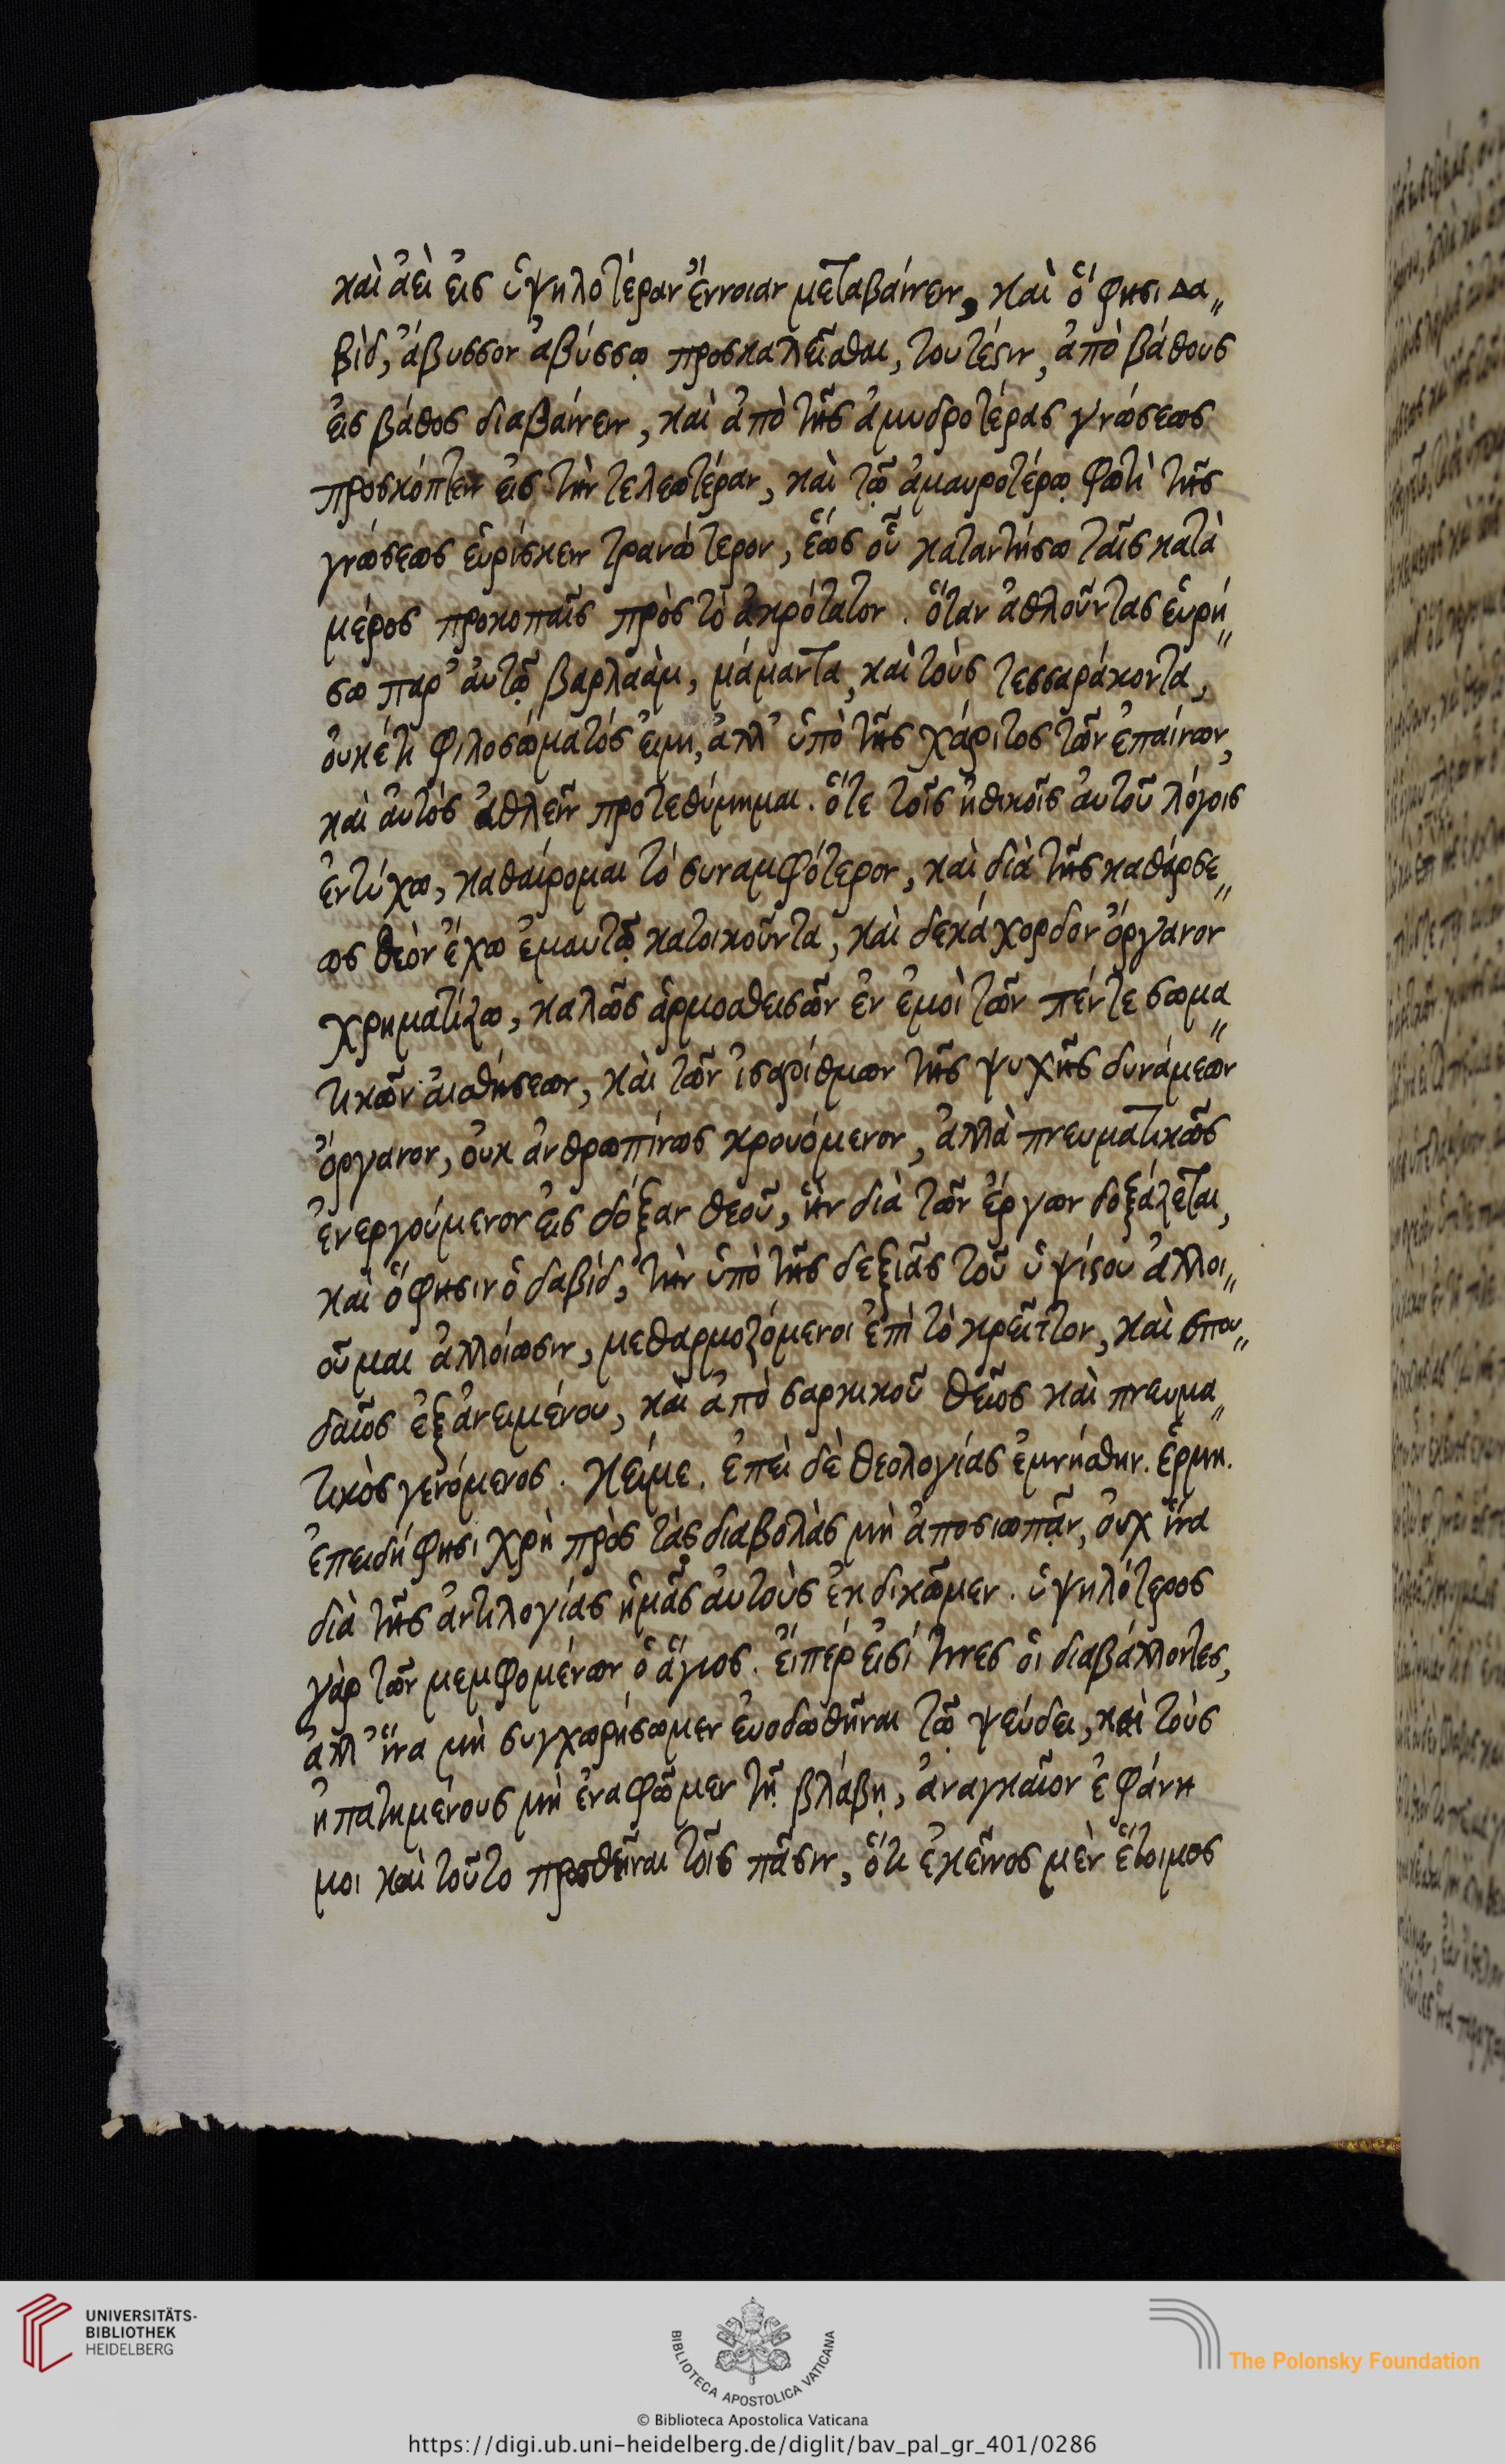 καὶ ἀεὶ εἰς ὑψηλοτέραν ἔννοιαν μεταβαίνειν, καὶ ὅ φησι Δα„
βὶδ, ἄβυσσον ἀβύσσῳ προσκαλεῖσθαι, τουτέςιν, ἀπὸ βάθους
εἰς βάθος διαβαίνειν, καὶ ἀπὸ τῆς ἀμυδροτέρας γνώσεως
προσκόπτειν εἰς τὴν τελεωτέραν, καὶ τῷ ἀμαυροτέρῳ φωτὶ τῆς
γνώσεως εὑρίσκειν τρανώτερον, ἕως οὗ καταντήσω ταῖς κατὰ
μέρος προκοπαῖς πρὸς τὸ ἀκρότατον. ὅταν ἀθλοῦντας εὑρή„
σω παρ' αὐτῷ βαρλαὰμ, μάμαντα, καὶ τοὺς τεσσαράκοντα,
οὐκέτι φιλοσώματός εἰμι, ἀλλ' ὑπὸ τῆς χάριτος τῶν ἐπαίνων,
καὶ αὐτός ἀθλεῖν προτεθύμημαι. ὅτε τοῖς ἠθικοῖς αὐτοῦ λόγοις
ἐντύχω, καθαίρομαι τὸ συναμφότερον, καὶ διὰ τῆς καθάρσε„
ως θεὸν ἔχω ἐμαυτῷ κατοικοῦντα, καὶ δεκάχορδον ὄργανον
χρηματίζω, καλῶς ἁρμοσθεισῶν ἐν ἐμοὶ τῶν πέντε σωμα„
τικῶν αἰσθήσεων, καὶ τῶν ἰσαρίθμων τῆς ψυχῆς δυνάμεων
ὄργανον, οὐκ ἀνθρωπίνως κρουόμενον, ἀλλὰ πνευματικῶς
ἐνεργούμενον εἰς δόξαν θεοῦ, ἣν διὰ τῶν ἔργων δοξάζεται,
καὶ ὅ φησιν ὁ δαβίδ, τὴν ὑπὸ τῆς δεξιᾶς τοῦ ὑψίςου ἀλλοι„
οῦμαι ἀλλοίωσιν, μεθαρμοζόμενοι ἐπὶ τὸ κρεῖττον, καὶ σπου„
δαῖος ἐξ ἀνειμένου, καὶ ἀπὸ σαρκικοῦ θεῖος καὶ πνευμα„
τικὸς γενόμενος. Κείμε. ἐπεὶ δὲ θεολογίας ἐμνήσθην. Ἑρμη.
ἐπειδή φησι χρὴ πρὸς τὰς διαβολὰς μὴ ἀποσιωπᾷν, οὐχ ἵνα
διὰ τῆς ἀντιλογίας ἡμᾶς αὐτοὺς ἐκδικῶμεν. ὑψηλότερος
γὰρ τῶν μεμφομένων ὁ ἅγιος. εἴπερ εἰσί τινες οἱ διαβάλλοντες,
ἀλλ' ἵνα μὴ συγχωρήσωμεν εὐοδωθῆναι τῷ ψεύδει, καὶ τοὺς
ἠπατημένους μὴ ἐναφῶμεν τῇ βλάβῃ, ἀναγκαῖον ἐφάνη
μοι καὶ τοῦτο προσθεῖναι τοῖς πᾶσιν, ὅτι ἐκεῖνος μὲν ἕτοιμος
UNIVERSITÄTS-
BIBLIOTHEK
HEIDELBERG
BIBLIOTECA APOSTOLICA VATICANA
The Polonsky Foundation
© Biblioteca Apostolica Vaticana
https://digi.ub.uni-heidelberg.de/diglit/bav_pal_gr_401/0286